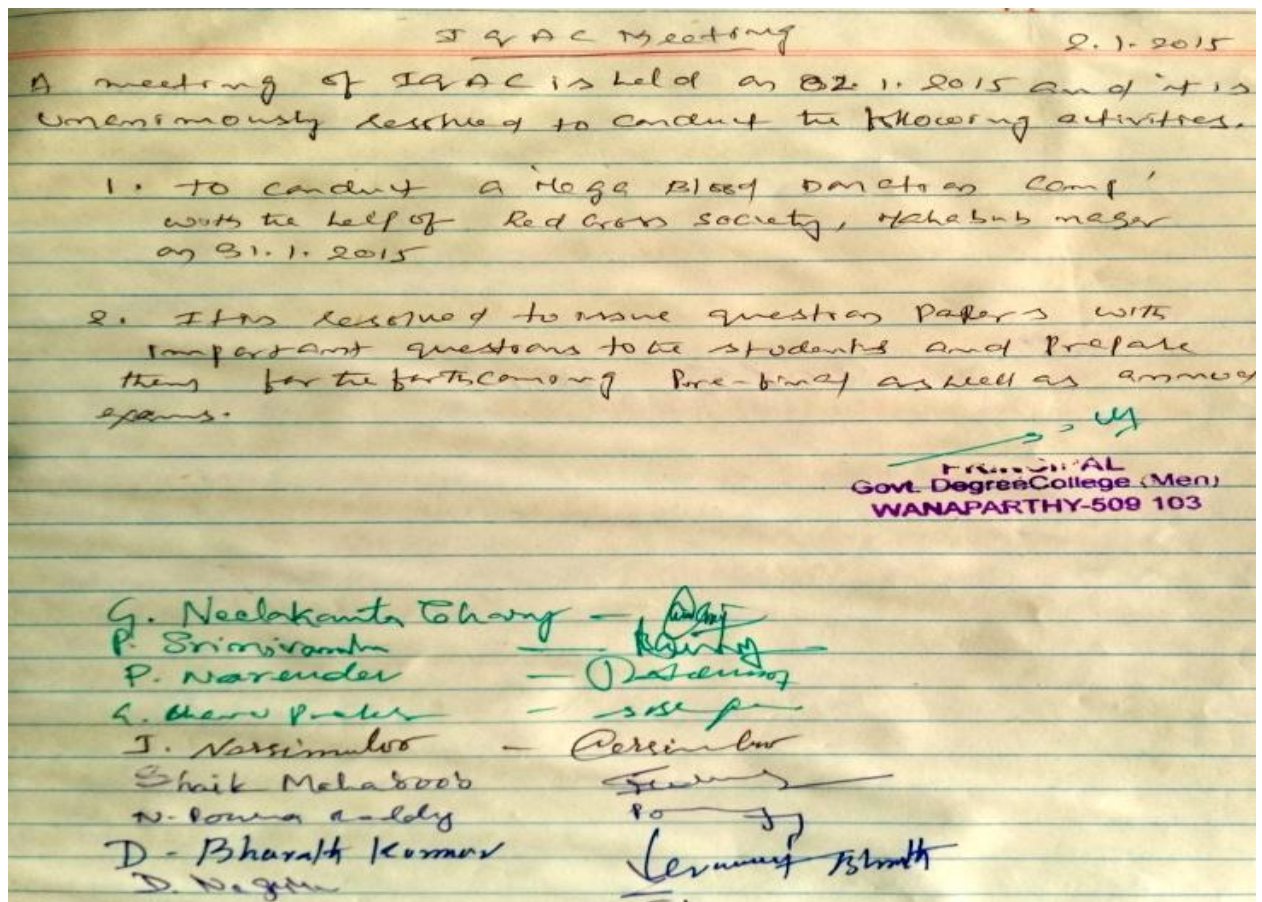 IQAC Meeting
2.1.2015
A meeting of IQAC is held on 02.1.2015 and it is
unanimously resolved to conduct the following activities.
1. To conduct a Mega Blood Donation Camp
with the help of Red Cross Society, Mahabub nagar
on 31.1.2015
2. It is resolved to issue question papers with
important questions to the students and prepare
them for the forthcoming Pre-final as well as annual
exams.
PRINCIPAL
Govt. Degree College (Men)
WANAPARTHY-509 103
G. Neelakanta Chary -
P.
P. Narender -
J. Narsimuloo -
Shaik Mahaboob
N. Reddy
D - Bharath Kumar Bharath
D.